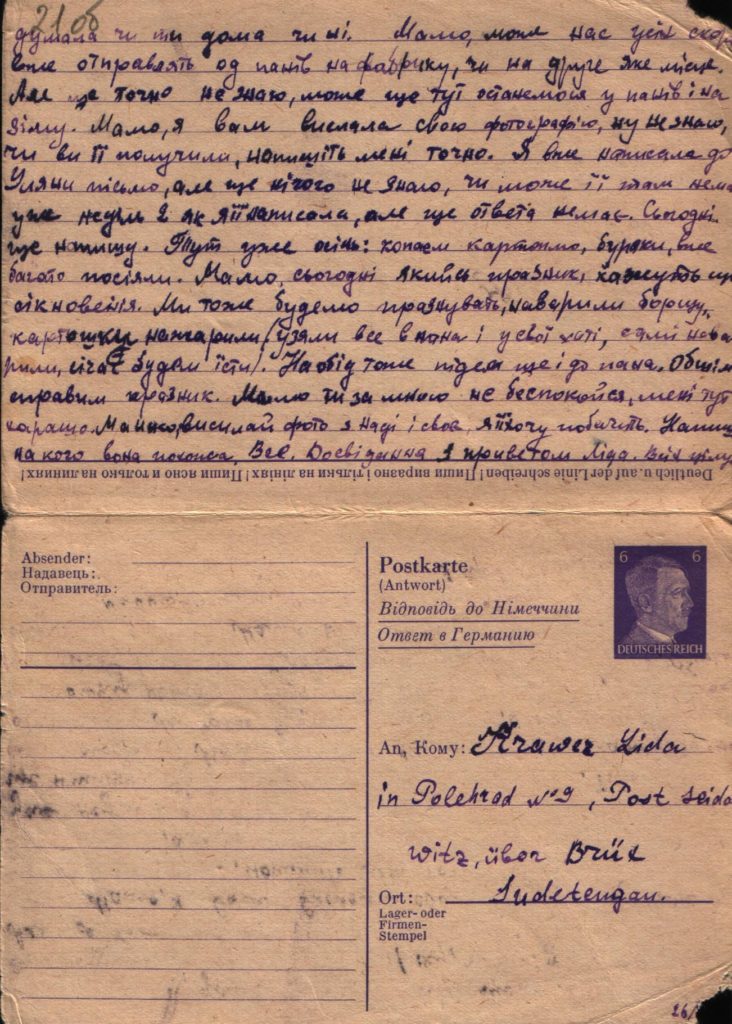 21 об
думала чи ти дома чи ні. Мамо, може нас усіх скоро
вже отправлять од панів на фабрику, чи на друге яке місце.
Але ще точно не знаю, може ще тут останемося у панів і на
зіму. Мамо, я вам вислала свою фотографію, ну не знаю,
чи ви її получили, напишіть мені точно. Я вже написала до
Уляни письмо, але ще нічого не знаю, чи може її там нема
уже недиль 2 як я її написала, але ще ответа немає. Сьогодні
ще напишу. Тут уже осінь: копаєм картошку, буряки, вже
багато посіяли. Мамо, сьогодні якийсь празник, кажуть що
сікновенія. Ми тоже будемо празнувать, наварили борщу,
картошки нажарили (узяли все в пана і у свої хаті, самі нава
рили, січас будем їсти). На обід тоже підем ще і до пана. Обшим
справим празник. Мамо ти за мною не беспокойся, мені тут
харашо. Мамо, висилай фото я Наді і своє, я її хочу побачить. Напиши
на кого вона похожа. Все. Досвідання з приветом Ліда. Всіх цілую
Deutlich u. auf der Linie schreiben! Пиши виразно і тільки на лініях! Пиши ясно и только на линиях!
Absender:
Надавець:
Отправитель:
Postkarte
(Antwort)
Відповідь до Німеччини
Ответ в Германию
6 6
DEUTSCHES REICH
An, Кому: Krawez Lida
in Polehrad №9, Post Seido
witz, über Brüx
Ort: Sudetengau.
Lager- oder
Firmen-
Stempel
26/